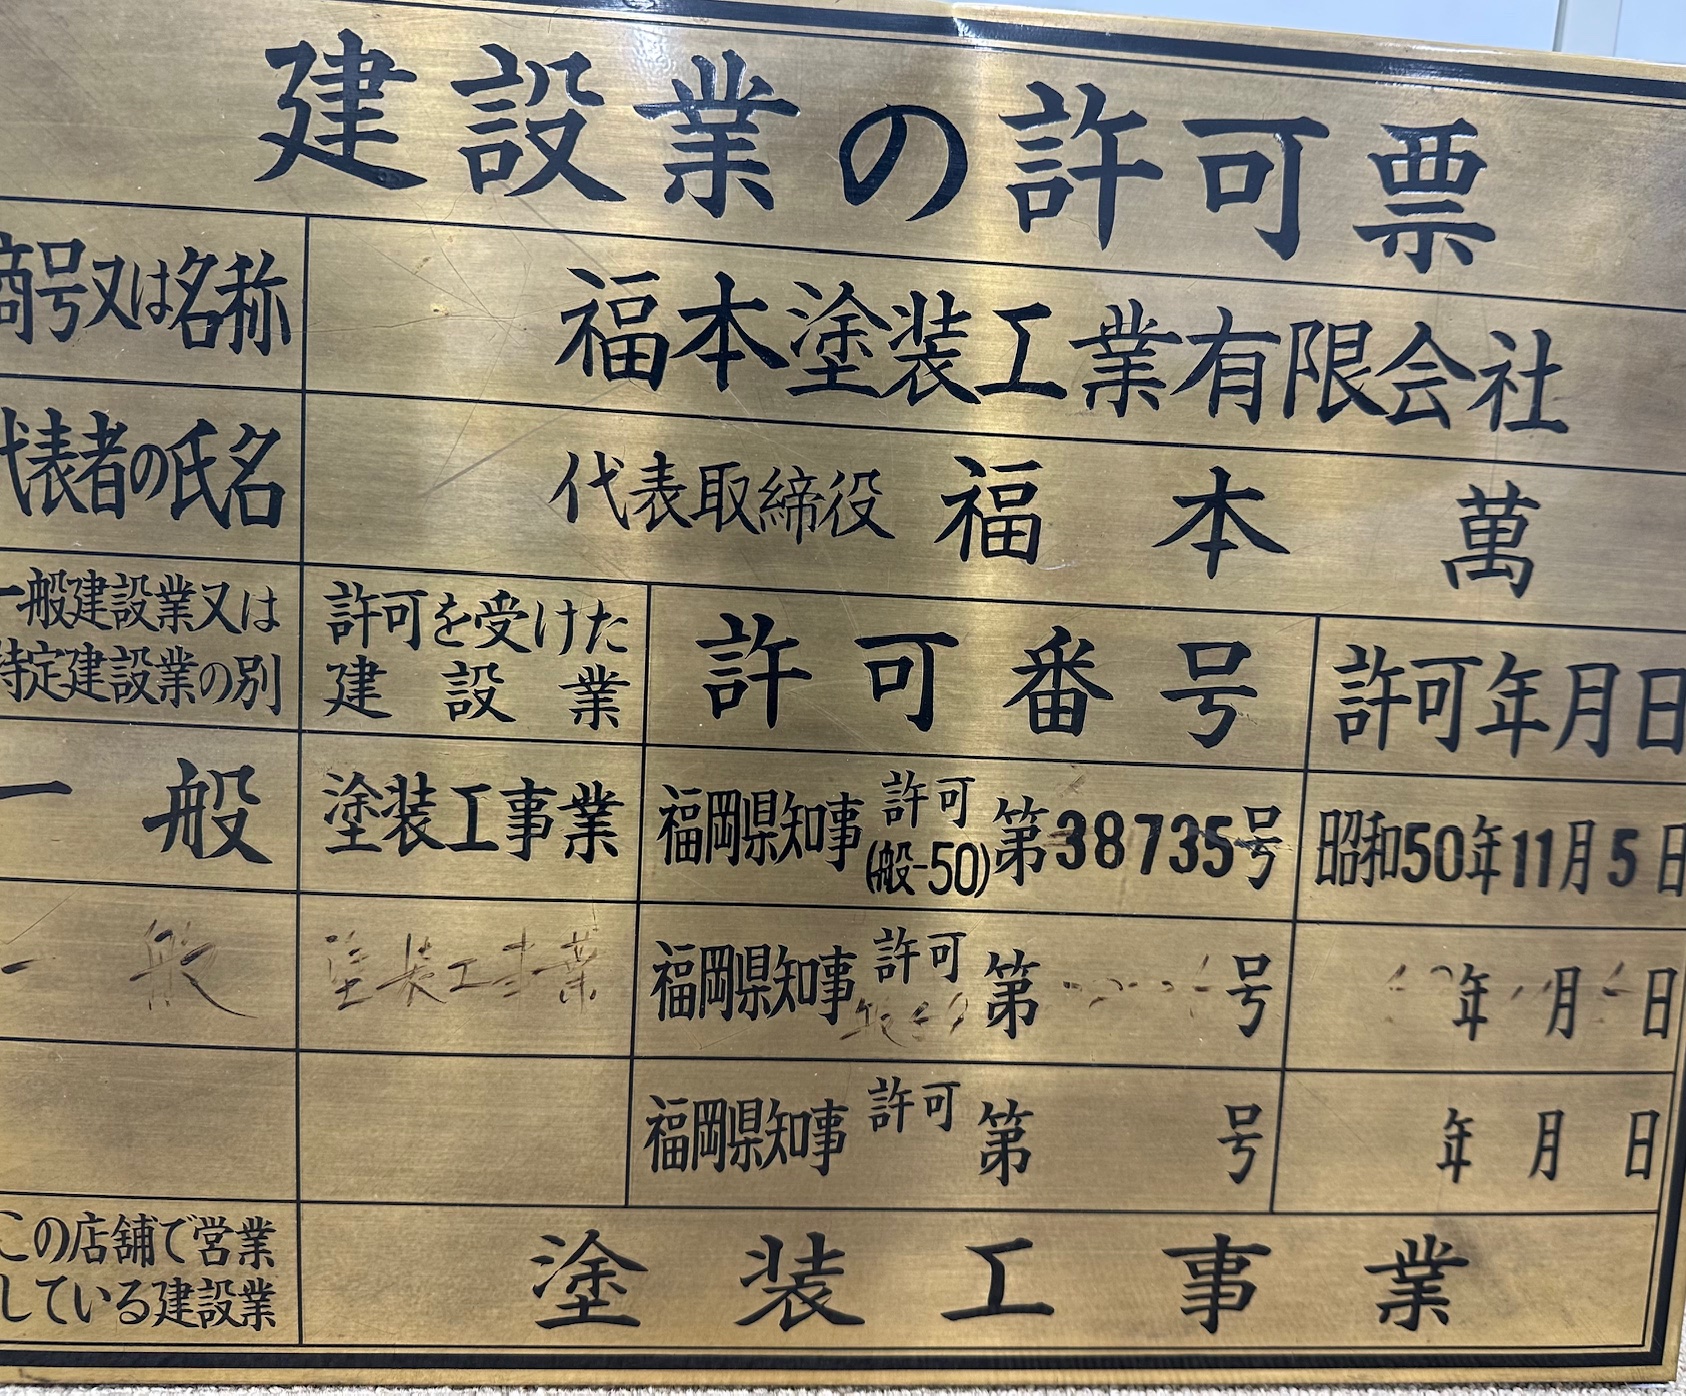 建設業の許可票
商号又は名称
福本塗装工業有限会社
代表者の氏名
代表取締役 福本 萬
一般建設業又は
特定建設業の別
許可を受けた
建設業
許可番号
許可年月日
一般
塗装工事業
福岡県知事 許可 (般-50) 第38735号
昭和50年11月5日
一般
塗装工事業
福岡県知事 許可 第 号
年 月 日
福岡県知事 許可 第 号
年 月 日
この店舗で営業
している建設業
塗装工事業